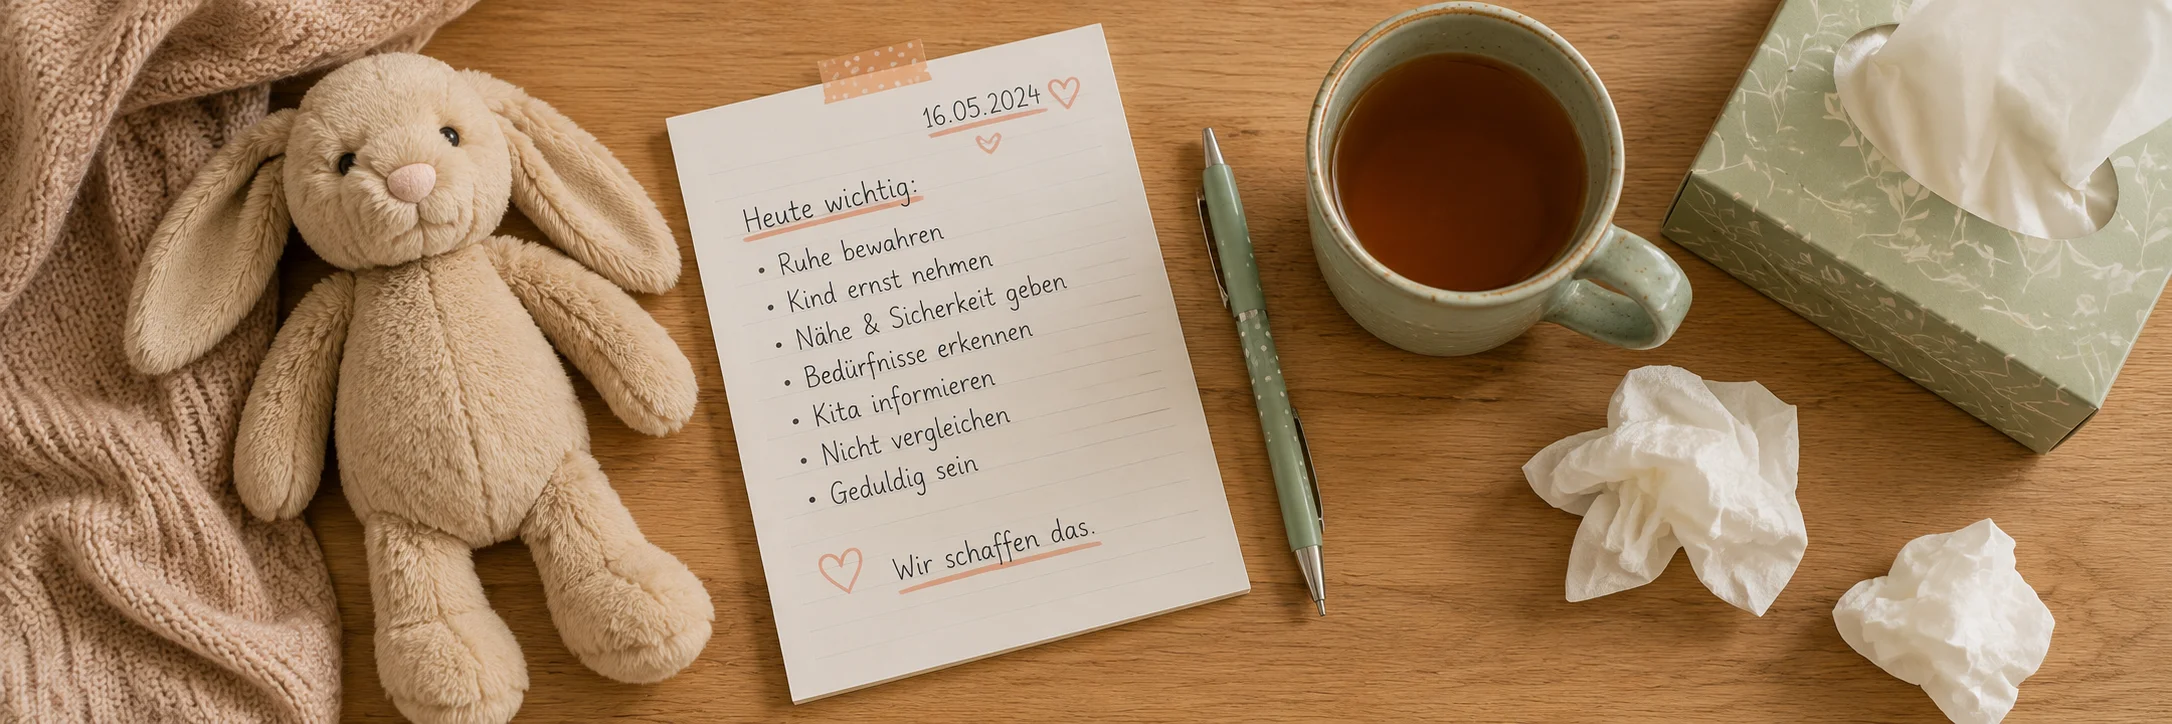 16.05.2024
Heute wichtig:
• Ruhe bewahren
• Kind ernst nehmen
• Nähe & Sicherheit geben
• Bedürfnisse erkennen
• Kita informieren
• Nicht vergleichen
• Geduldig sein
Wir schaffen das.